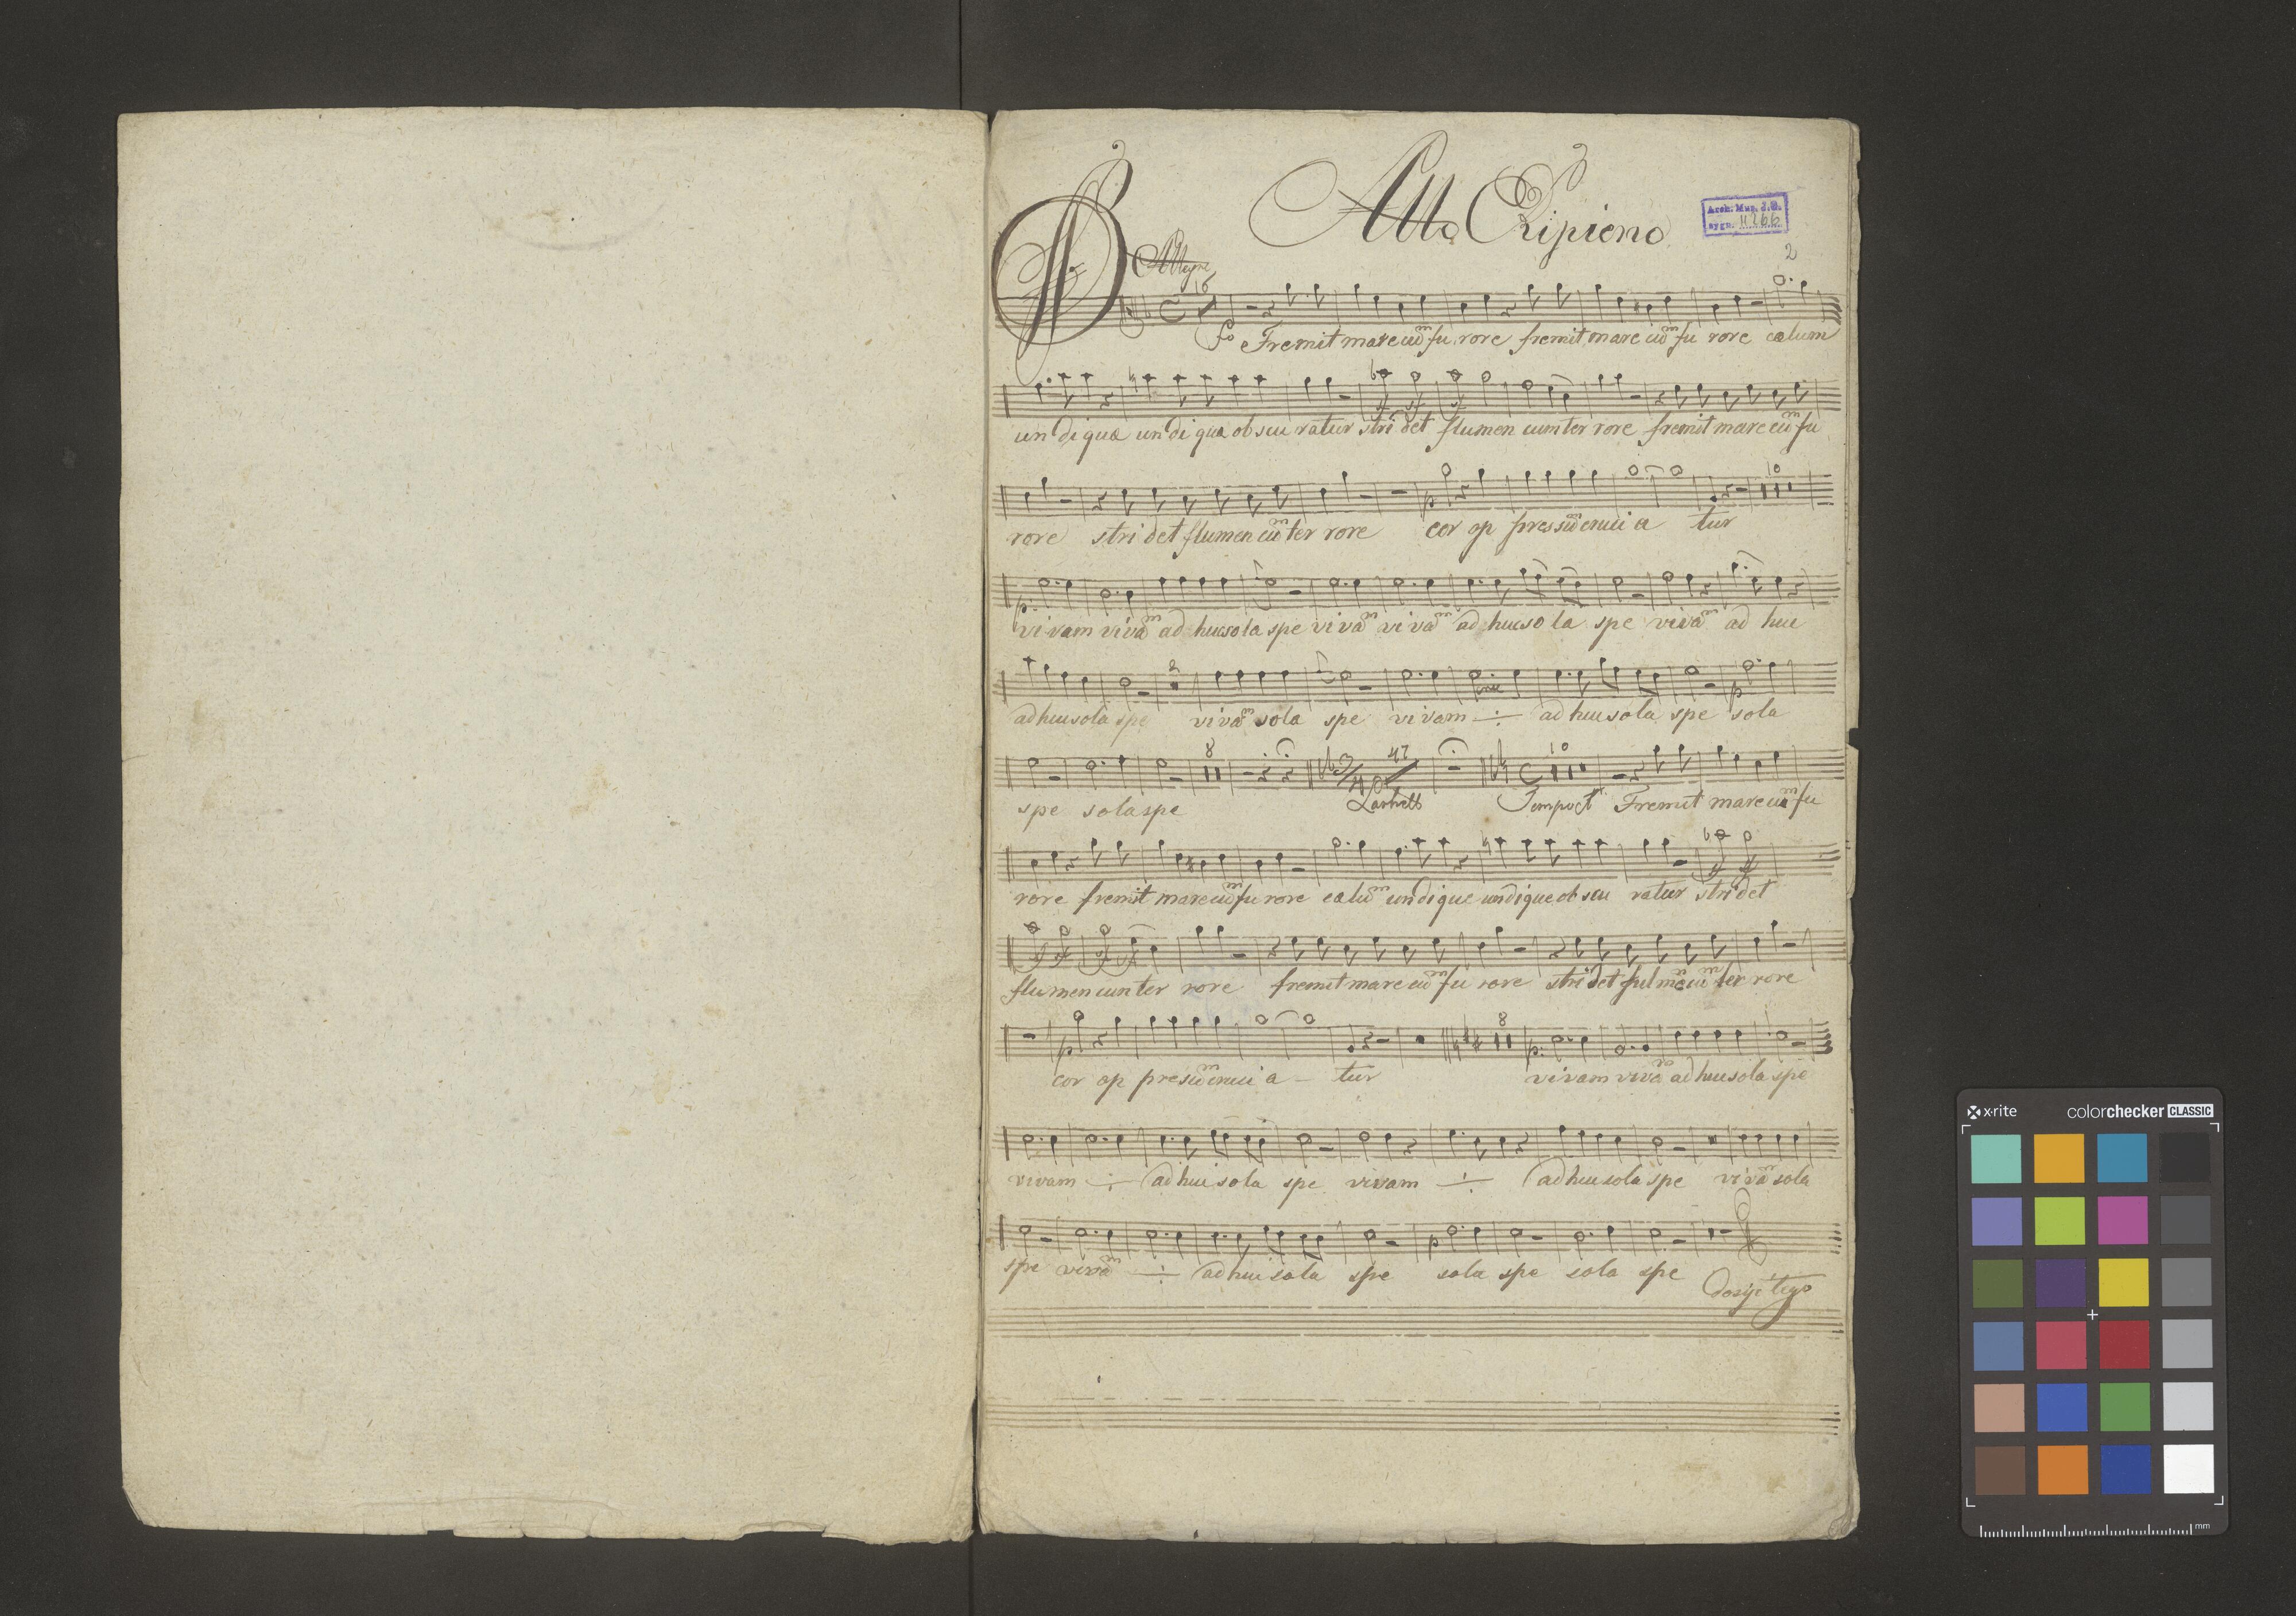 Alto Ripieno
Arch. Mus. J.G.
sygn. II 266
2
Allegro
16
fo Fremit mare cūm fu rore fremit mare cūm fu rore cælum
un di quæ un di qua ob scu ratur stri det flumen cum ter rore fremit mare cūm fu
10
rore stri det flumen cūm ter rore cor op pressūm cruci a tur
p: vi vam vi vām ad huc so la spe vi vām vi vām ad huc so la spe vivām ad huc
2
ad huc sola spe vivām sola spe vivam ÷ ad huc sola spe sola
8 3/4 47 10
spe sola spe Tempo Fremit mare cūm fu
rore fremit mare cūm fu rore cælūm undique undique ob scu ratur stridet
flumen cum ter rore fremit mare cūm fu rore stri det fulmē cūm ter rore
8
cor op presūm cruci a - tur vivam vivām ad huc sola spe
vivam ÷ ad huc sola spe vivam ÷ ad huc sola spe vivām sola
spe vivām ÷ ad huc sola spe sola spe sola spe
Dosyć tego
x·rite colorchecker CLASSIC
mm